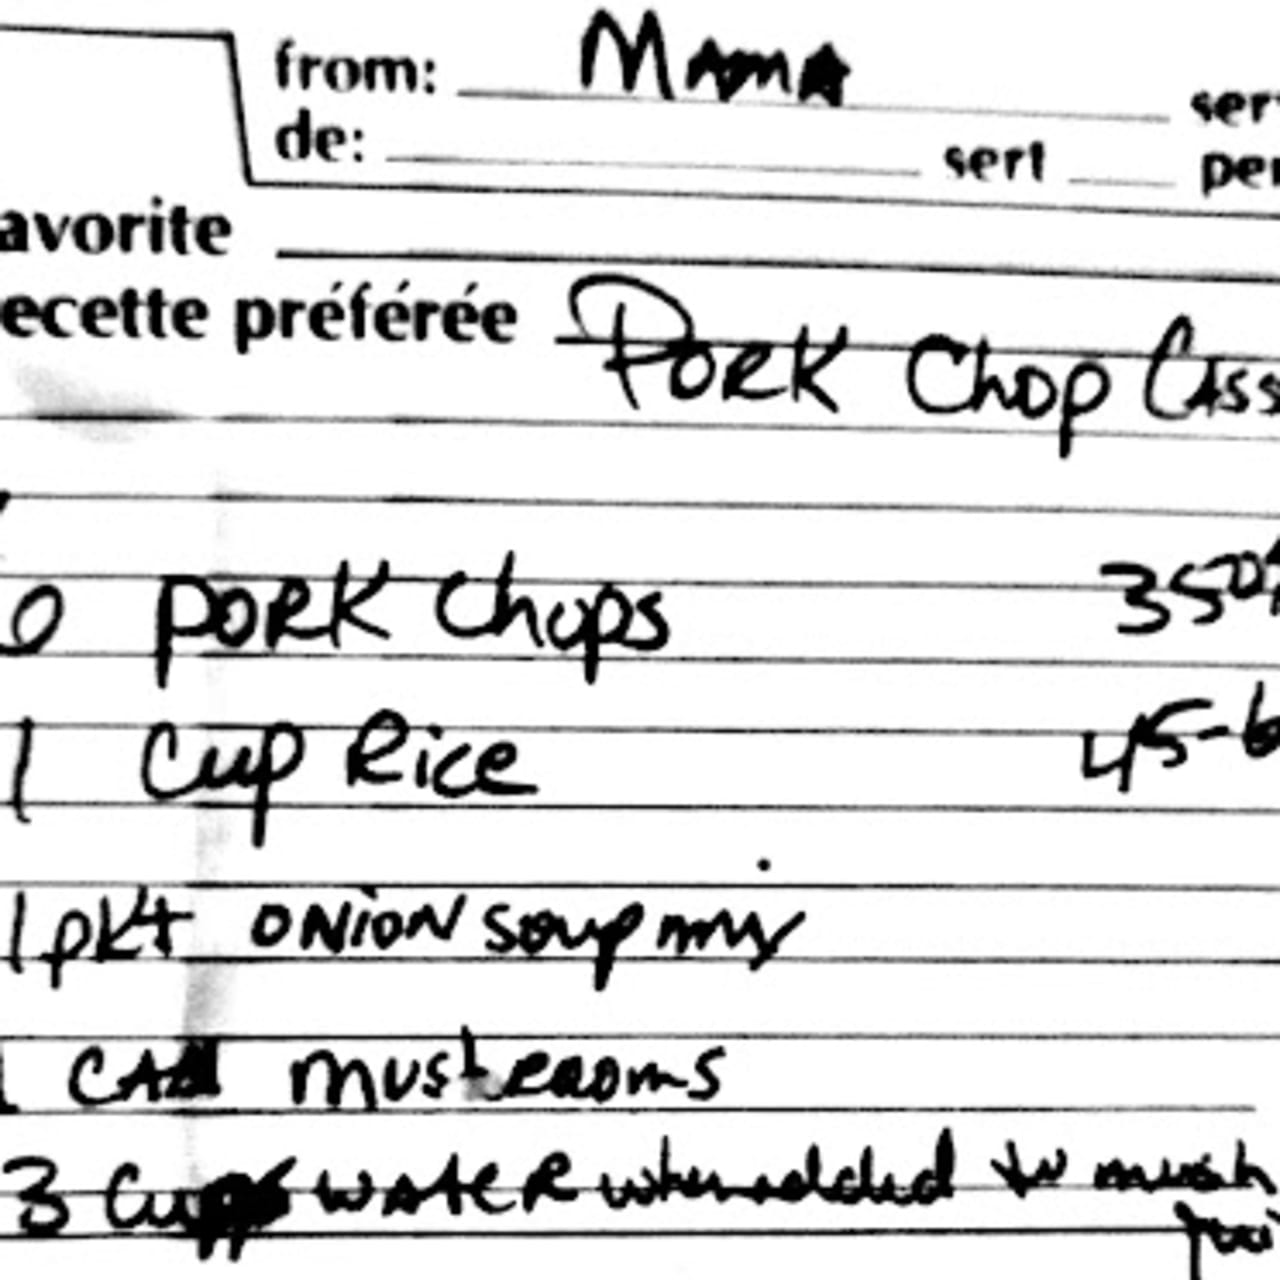 from: Mama
de: sert
avorite
ecette préférée Pork Chop Cass
PORK Chops 350°
1 Cup Rice 45-6
1 pkt ONION Soup mix
1 CAN mushrooms
3 Cups WATER when added to mush